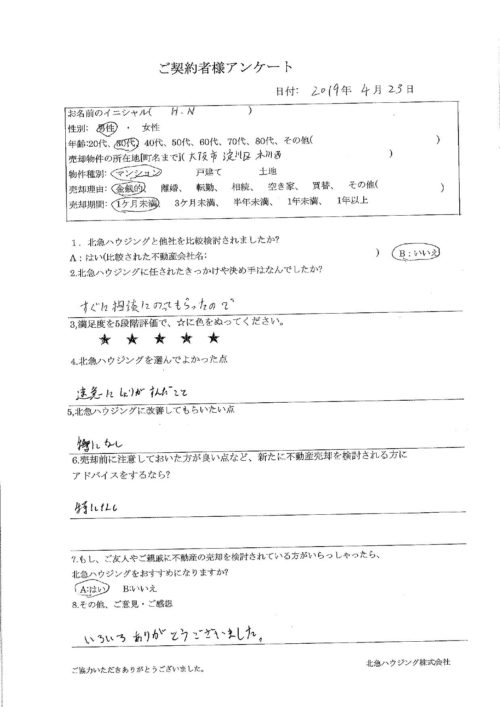 ご契約者様アンケート
日付: 2019年 4月 23日
お名前のイニシャル( H.N )
性別: 男性 ・ 女性
年齢:20代、30代、40代、50代、60代、70代、80代、その他( )
売却物件の所在地[町名まで]( 大阪市 淀川区 木川西
物件種別: マンション 戸建て 土地
売却理由: 金銭的、 離婚、 転勤、 相続、 空き家、 買替、 その他( )
売却期間: 1ケ月未満、 3ケ月未満、 半年未満、 1年未満、 1年以上
1. 北急ハウジングと他社を比較検討されましたか?
A:はい(比較された不動産会社名: ) B:いいえ
2.北急ハウジングに任されたきっかけや決め手はなんでしたか?
すぐに相談にのってもらったので
3,満足度を5段階評価で、☆に色をぬってください。
★ ★ ★ ★ ★
4.北急ハウジングを選んでよかった点
迅速にしょりがすんだこと
5,北急ハウジングに改善してもらいたい点
特になし
6.売却前に注意しておいた方が良い点など、新たに不動産売却を検討される方に
アドバイスをするなら?
特になし
7.もし、ご友人やご親戚に不動産の売却を検討されている方がいらっしゃったら、
北急ハウジングをおすすめになりますか?
A:はい B:いいえ
8.その他、ご意見・ご感想
いろいろありがとうございました。
ご協力いただきありがとうございました。 北急ハウジング株式会社